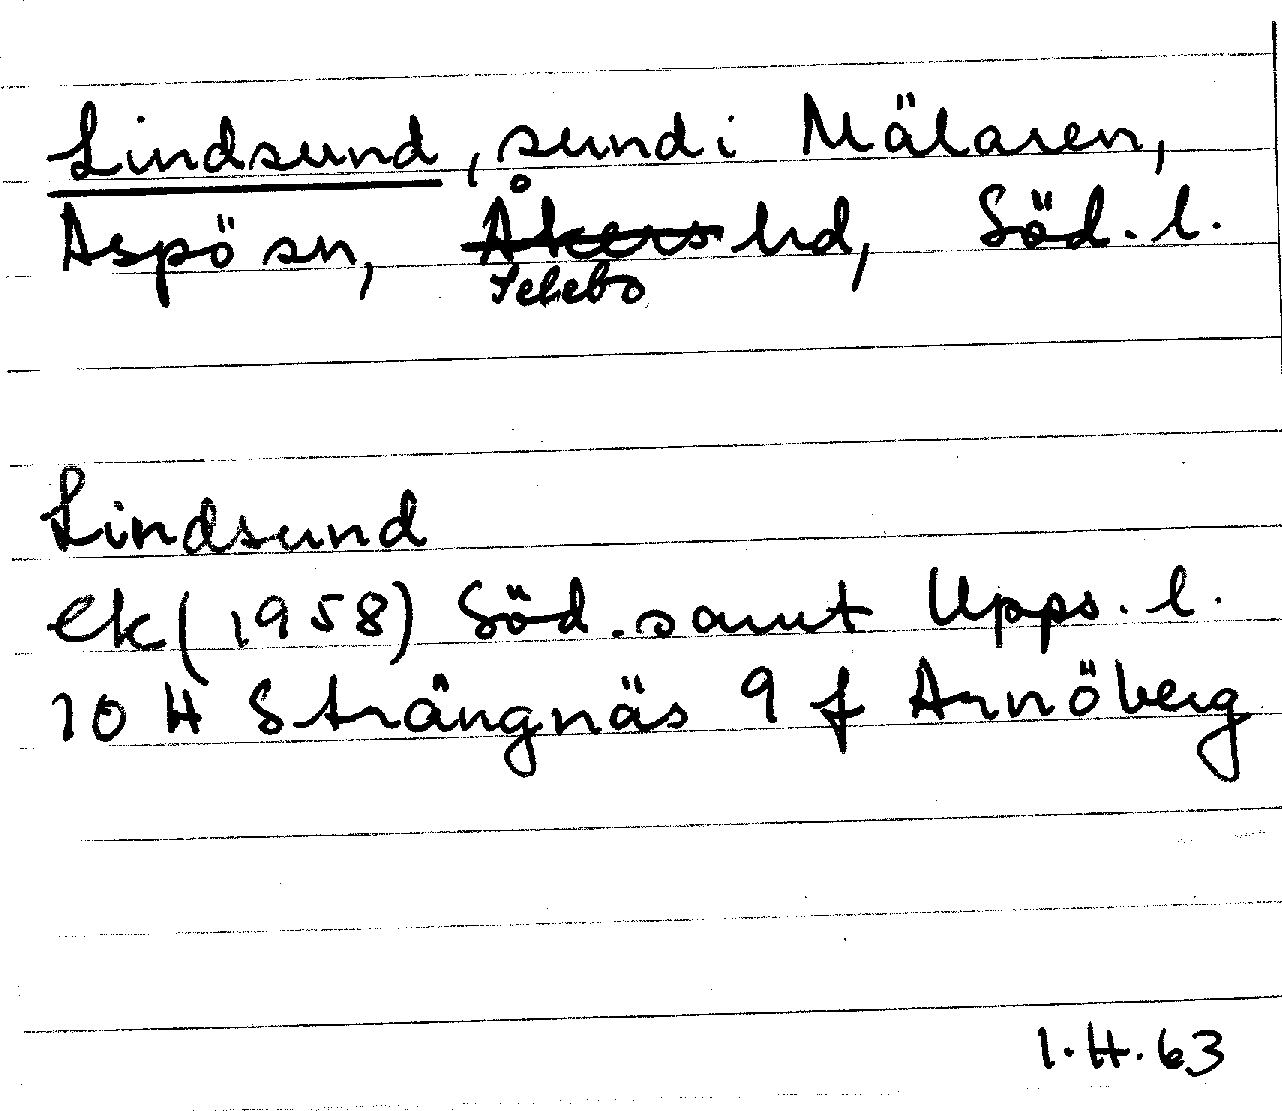 Lindsund, sund i Mälaren,
Aspö sn, Åkers hd, Söd. l.
Selebo
Lindsund
ek (1958) Söd. samt Upps. l.
10 H Strängnäs 9 f Arnöberg
I.H. 63